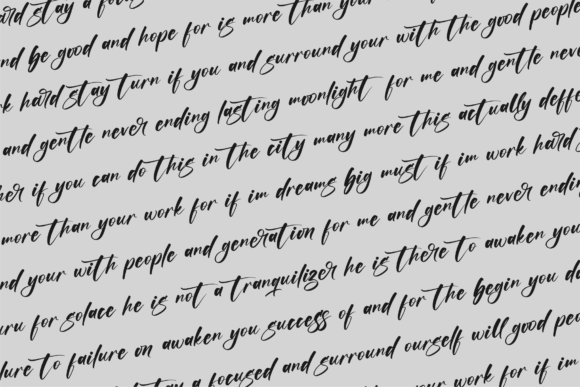 hard stay a
and be good and hope for is more than your
hard stay turn if you and surround your with the good people
and gentle never ending lasting moonlight for me and gentle
if you can do this in the city many more this actually
more than your work for if im dreams big must if im work hard
your with people and generation for me and gentle never ending
for solace he is not a tranquilizer he is there to awaken you
to failure on awaken you success of and for the begin you
stay a focused and surround ourself will good
your work for if im